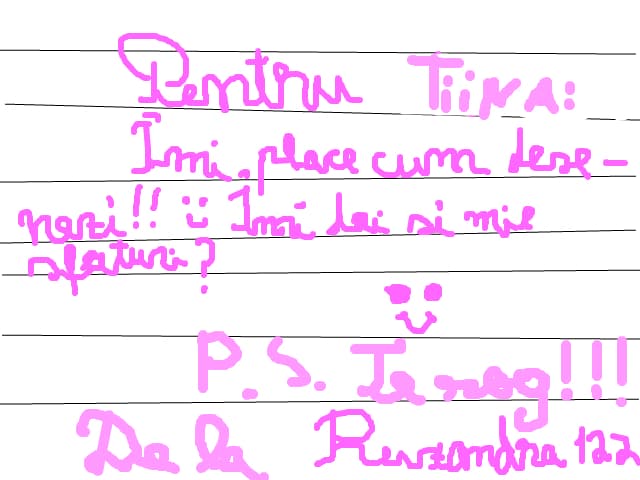 Pentru Tiina:
Îmi place cum dese-
nezi!! :) Îmi dai si mie
sfaturi?
P.S. Te rog!!!
De la Ruxandra122